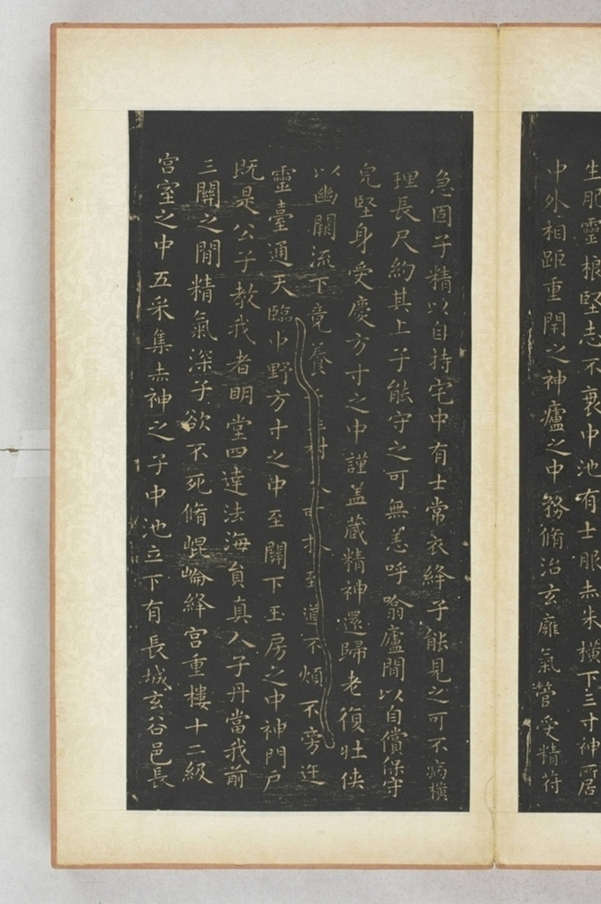 生肥靈根堅志不衰中池有士服赤朱橫下三寸神所居
中外相距重閉之神廬之中務脩治玄廱氣管受精苻
急固子精以自持宅中有士常衣絳子能見之可不病橫
理長尺約其上子能守之可無恙呼噏廬間以自償保守
完堅身受慶方寸之中謹盖藏精神還歸老復壯俠
以幽闕流下竟養至道不煩不旁迕
靈臺通天臨中野方寸之中至關下玉房之中神門戶
既是公子教我者明堂四達法海員真人子丹當我前
三關之間精氣深子欲不死脩崐崘絳宮重樓十二級
宮室之中五采集赤神之子中池立下有長城玄谷邑長